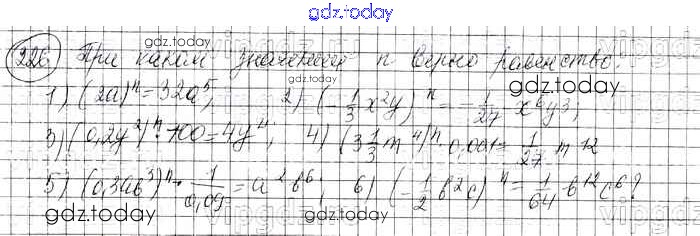 gdz.today
226 При каком значении n верно равенство:
1) (2a)^n = 32a^5; 2) (-1/3 x^2y)^n = -1/27 x^6y^3;
3) (0,2y^2)^n · 100 = 4y^4; 4) (3 1/3 m^4)^n · 0,001 = 1/27 m^12
5) (0,3ab^3)^n · 1/0,09 = a^2b^6; 6) (-1/2 b^2c)^n = 1/64 b^12c^6?
gdz.today